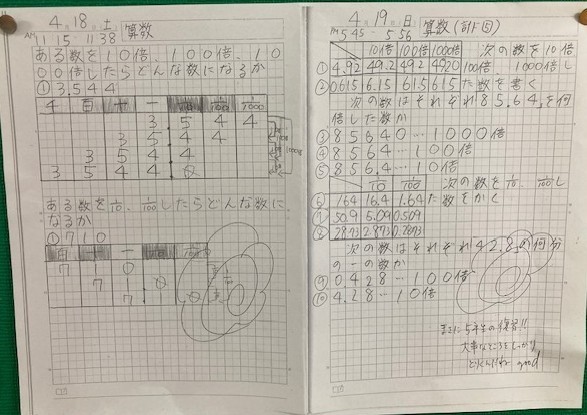 4月18日 土 算数
AM 11:15 11:38
ある数を10倍、100倍、10
00倍したらどんな数になるか
①3,544
千 百 十 一 1/10 1/100 1/1000
3 5 4 4
3 5 4 4
3 5 4 4
3 5 4 4 0
ある数を1/10、1/100したらどんな数に
なるか
①710
百 十 一
7 1 0
7 1 0
7
4月19日 日 算数(計ド⑤)
5:45 5:56
10倍 100倍 1000倍 次の数を10倍
① 4.92 49.2 492 4920 100倍 1000倍し
② 0.615 6.15 61.5 615 た数を書く
次の数はそれぞれ85.64を何
倍した数か
③85640…1000倍
④8564…100倍
⑤856.4…10倍
1/10 1/100 次の数を1/10、1/100し
⑥ 164 16.4 1.64 た数をかく
⑦ 50.9 5.09 0.509
⑧ 28.73 2.873 0.2873
次の数はそれぞれ42.8の何分
の一の数か
⑨0.428…100倍
⑩4.28…10倍
まさに5年生の復習!!
大事なところをしっかり
good